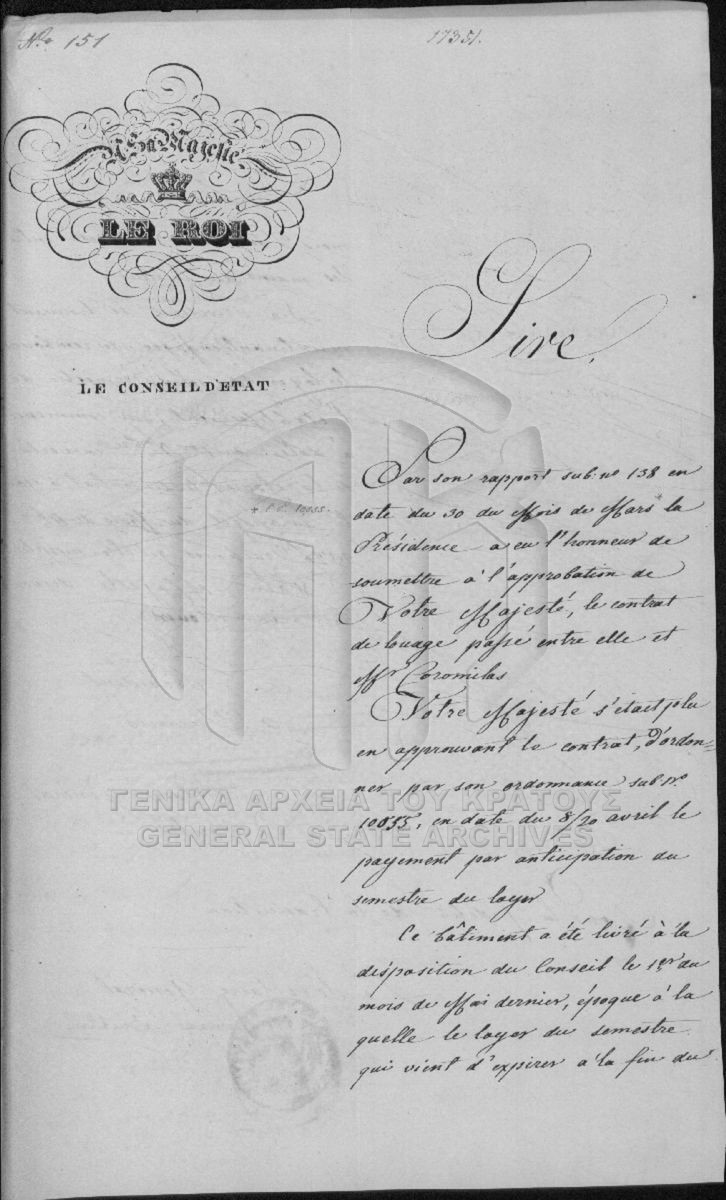 No 151
17351.
A Sa Majesté
LE ROI
LE CONSEIL D'ETAT
Sire,
Par son rapport sub: no 138 en
date du 30 du Mois de Mars la
Présidence a eu l'honneur de
soumettre à l'approbation de
Votre Majesté, le contrat
de louage passé entre elle et
Mr Coromilas
Votre Majesté s'étaet plu
en approuvant le contrat, d'ordon=
ner par son ordonnance sub no
10055, en date du 8/20 avril le
payement par anticipation du
semestre du loyer
Ce bâtiment a été livré à la
disposition du Conseil le 1er du
mois de Mai dernier, époque à la
quelle le loyer du semestre
qui vient d'expirer a la fin du
+ 10055.
ΓΕΝΙΚΑ ΑΡΧΕΙΑ ΤΟΥ ΚΡΑΤΟΥΣ
GENERAL STATE ARCHIVES